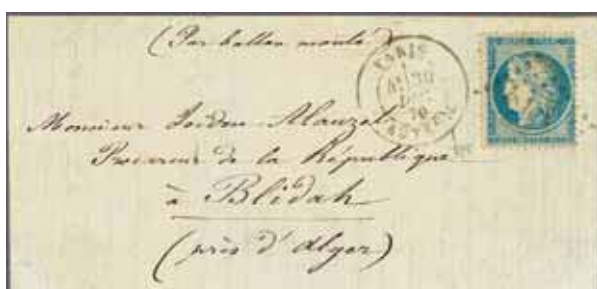 (Par ballon monté)
PARIS
30
70
Monsieur Isidore Alauzet
Procureur de la République
à Blidah
(près d'Alger)